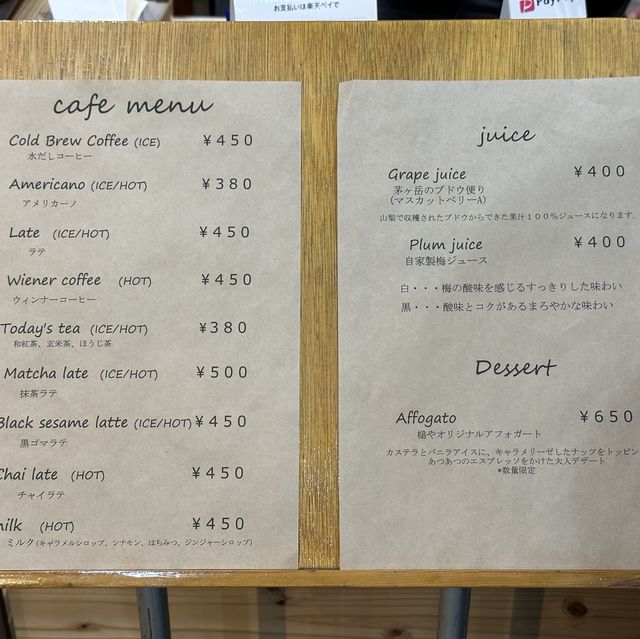 お支払いは楽天ペイで
cafe menu
Cold Brew Coffee (ICE) ¥450
水だしコーヒー
Americano (ICE/HOT) ¥380
アメリカーノ
Late (ICE/HOT) ¥450
ラテ
Wiener coffee (HOT) ¥450
ウィンナーコーヒー
Today's tea (ICE/HOT) ¥380
和紅茶、玄米茶、ほうじ茶
Matcha late (ICE/HOT) ¥500
抹茶ラテ
Black sesame latte (ICE/HOT) ¥450
黒ゴマラテ
Chai late (HOT) ¥450
チャイラテ
milk (HOT) ¥450
ミルク(キャラメルシロップ、シナモン、はちみつ、ジンジャーシロップ)
juice
Grape juice ¥400
茅ヶ岳のブドウ便り
(マスカットベリーA)
山梨で収穫されたブドウからできた果汁100%ジュースになります。
Plum juice ¥400
自家製梅ジュース
白・・・梅の酸味を感じるすっきりした味わい
黒・・・酸味とコクがあるまろやかな味わい
Dessert
Affogato ¥650
槌やオリジナルアフォガート
カステラとバニラアイスに、キャラメリーゼしたナッツをトッピン
あつあつのエスプレッソをかけた大人デザート
*数量限定